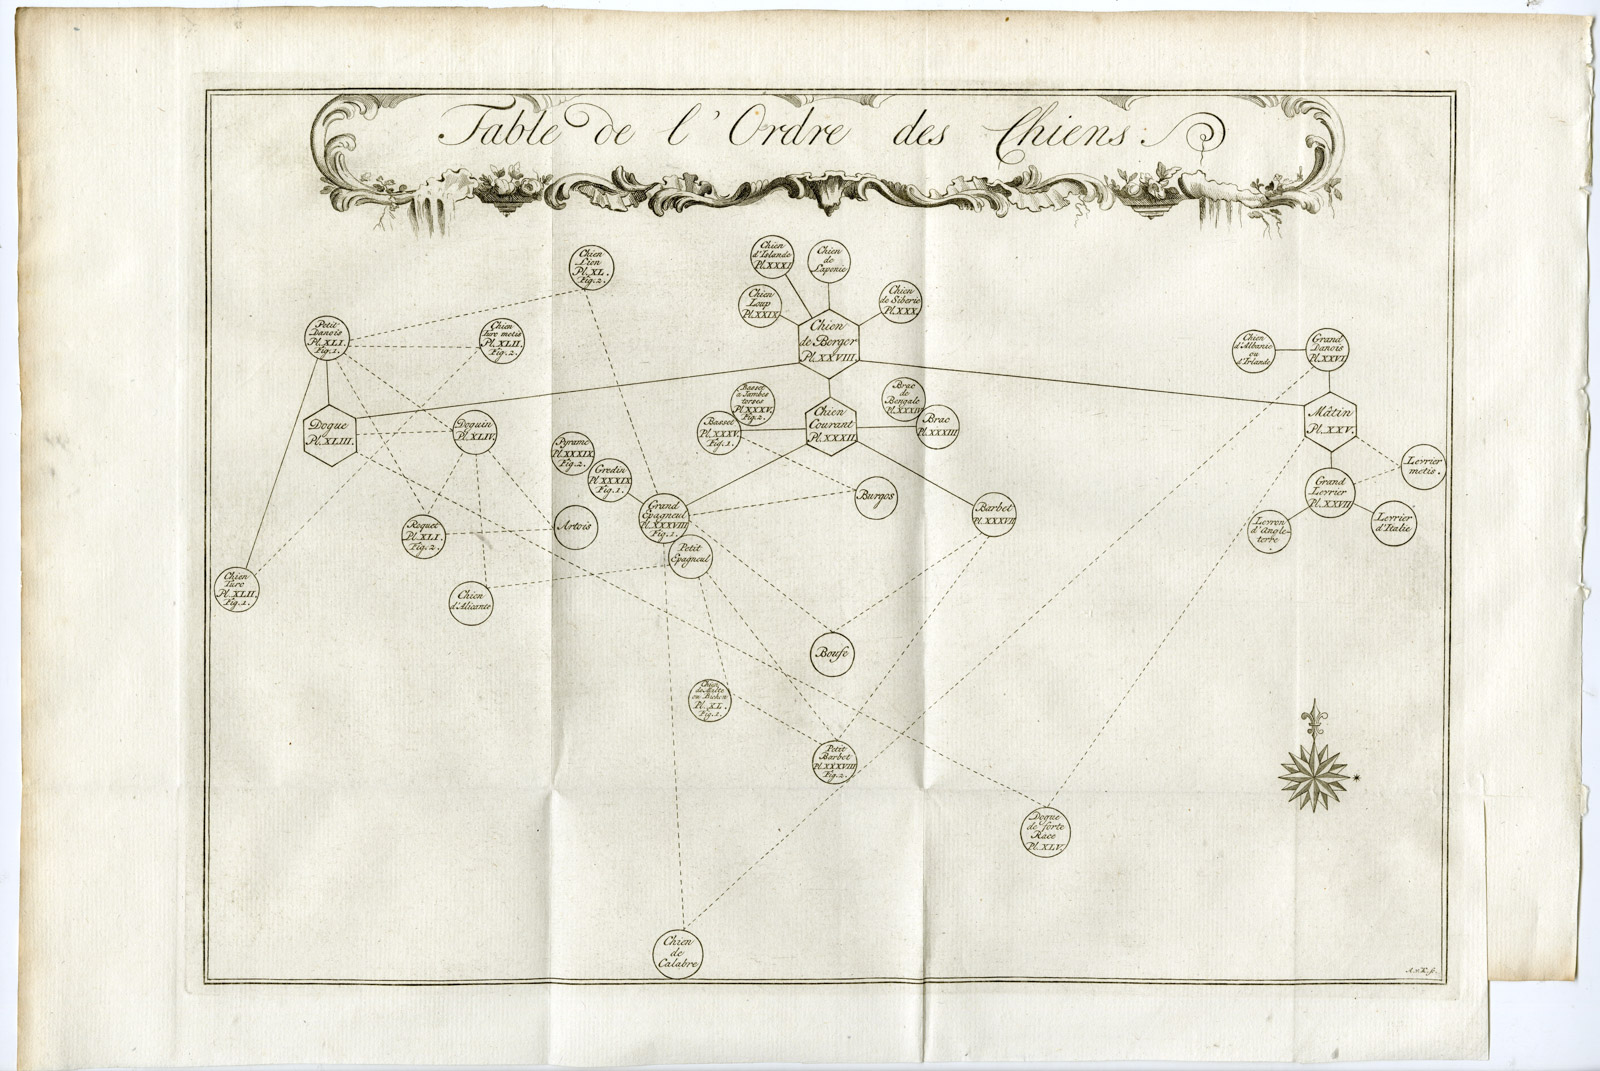 Table de l'Ordre des Chiens.
Chien
Lion
Pl. XL.
Fig. 2.
Chien
d'Islande
Pl. XXXI
Chien
de
Laponie
Chien
Loup
Pl. XXIX
Chien
de Siberie
Pl. XXX.
Chien
de Berger
Pl. XXVIII.
Petit
Danois
Pl. XLI.
Fig. 1.
Chien
Turc metis
Pl. XLII.
Fig. 2.
Chien
d'Albanie
ou
d'Irlande
Grand
Danois
Pl. XXVI
Dogue
Pl. XLIII.
Doguin
Pl. XLIV.
Basset
a Jambes
torses
Pl. XXXV.
Fig. 2.
Basset
Pl. XXXV.
Fig. 1.
Chien
Courant
Pl. XXXII.
Brac
de
Bengale
Pl. XXXIV
Brac
Pl. XXXIII
Mâtin
Pl. XXV.
Pyrame
Pl. XXXIX
Fig. 2.
Gredin
Pl. XXXIX
Fig. 1.
Levrier
metis.
Grand
Levrier
Pl. XXVII
Grand
Epagneul
Pl. XXXVIII
Fig. 1.
Burgos
Barbet
Pl. XXXVII
Roquet
Pl. XLI.
Fig. 2.
Artois
Levron
d'Angle-
terre
Levrier
d'Italie
Petit
Epagneul
Chien
Turc
Pl. XLII.
Fig. 1.
Chien
d'Alicante
Boufe
Chien
de Malte
ou Bichon
Pl. XL.
Fig. 1.
Petit
Barbet
Pl. XXXVIII
Fig. 2.
Dogue
de forte
Race
Pl. XLV.
Chien
de
Calabre